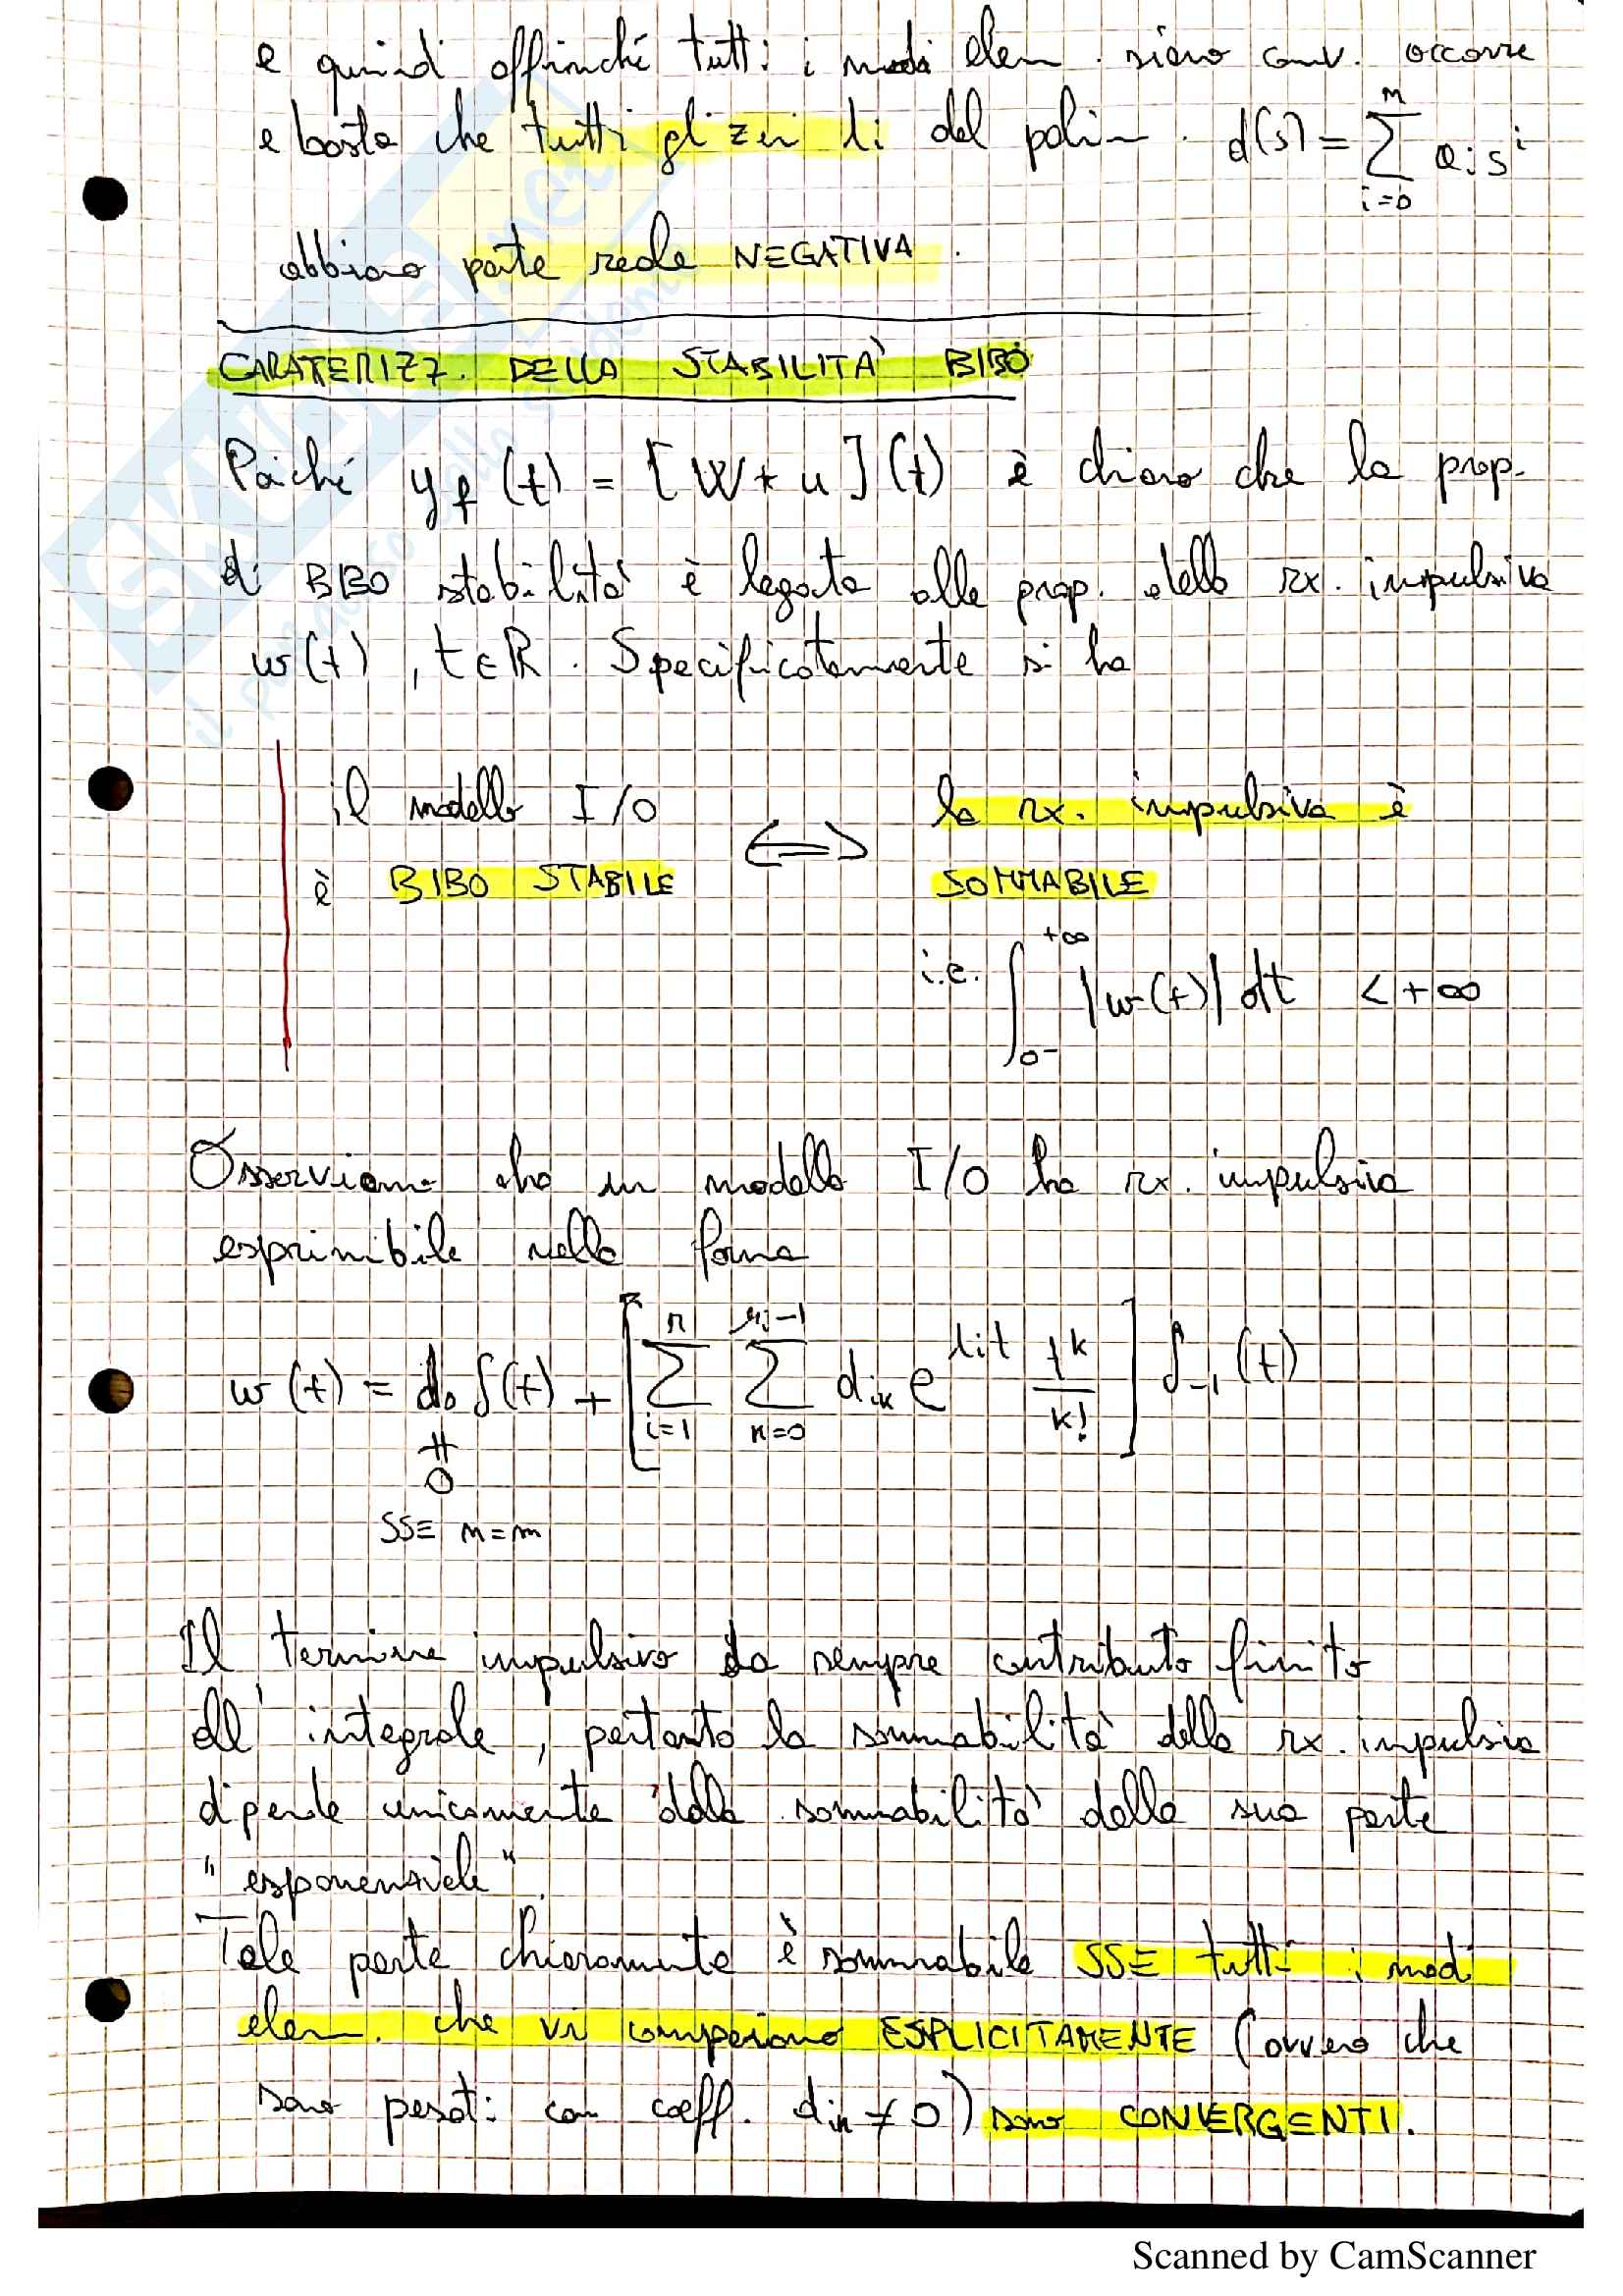 e quindi affinché tutti i modi elem. siano conv. occorre
e basta che tutti gli zeri λi del polin. d(s) = ∑_{i=0}^{n} a_i s^i
abbiano parte reale NEGATIVA.
CARATERIZZ. DELLA STABILITA' BIBO
Poiché y_f (t) = [W * u](t) è chiaro che la prop.
di BIBO stabilità è legata alle prop. della rx. impulsiva
w(t), t∈ℝ. Specificatamente si ha
il modello I/O ⟺ la rx. impulsiva è
è BIBO STABILE SOMMABILE
i.e. ∫_{0^-}^{+∞} |w(t)| dt < +∞
Osserviamo che un modello I/O ha rx. impulsiva
esprimibile nella forma
w(t) = d_0 δ(t) + [∑_{i=1}^{r} ∑_{k=0}^{μ_i-1} d_{ik} e^{λit} t^k/k!] δ_{-1}(t)
≠
0
SSE n=m
Il termine impulsivo da sempre contributo finito
all'integrale, pertanto la sommabilità della rx. impulsiva
dipende unicamente dalla sommabilità della sua parte
"esponenziale".
Tale parte chiaramente è sommabile SSE tutti i modi
elem. che vi compaiono ESPLICITAMENTE (ovvero che
sono pesati con coeff. d_{ik} ≠ 0) sono CONVERGENTI.
SKUOLA.net
il paradiso dello studente
Scanned by CamScanner